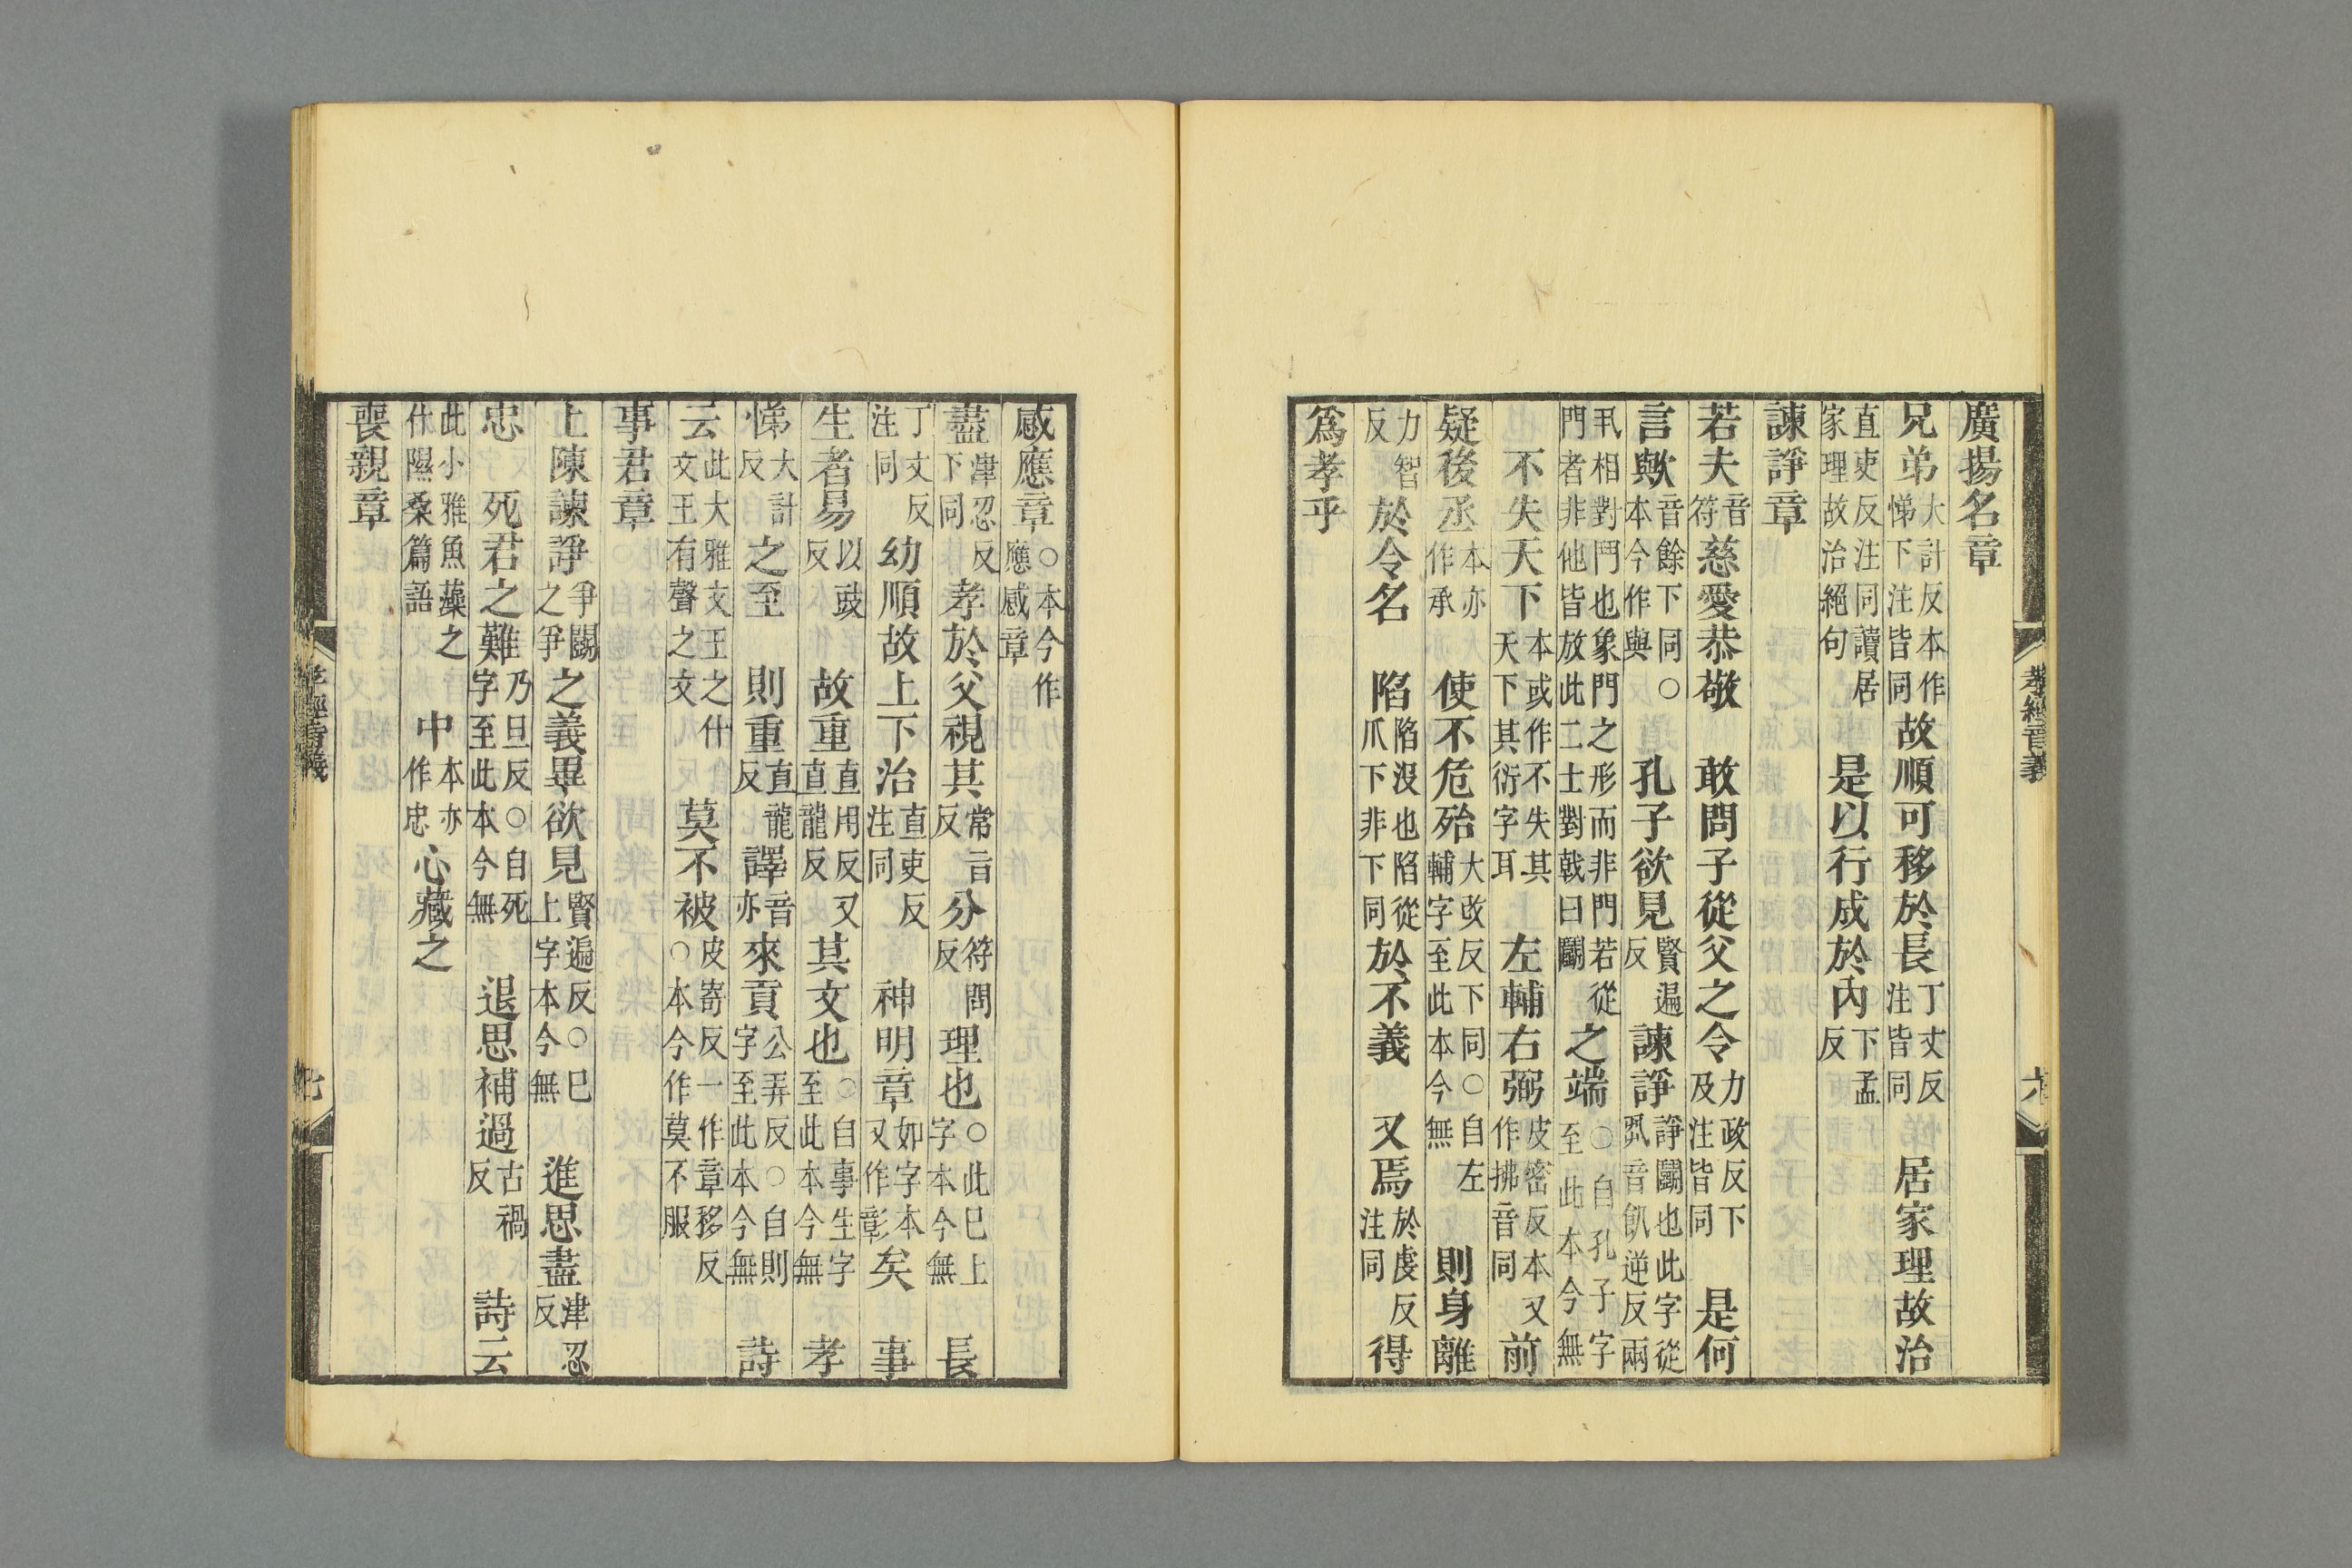 廣揚名章
兄弟大計反本作悌下注皆同故順可移於長丁丈反注皆同居家理故治
直吏反注同讀居家理故治絕句是以行成於內下孟反
諫諍章
若夫音符慈愛恭敬敢問子從父之令力政反下及注皆同是何
言歟音餘下同○本今作與孔子欲見賢遍反諫諍諍鬭也此字從丮音飢逆反兩
丮相對鬥也象鬥之形而非門若從門者非他皆放此二士對戟曰鬭之端○自孔子字至此本今無
不失天下本或作不失其天下其衍字耳左輔右弼皮密反本又作拂音同前
疑後丞本亦作承使不危殆大改反下同○自左輔字至此本今無則身離
力智反於令名陷陷沒也陷從爪下非下同於不義又焉於虔反注同得
爲孝乎
孝經音義
六
感應章○本今作應感章
盡津忍反下同孝於父視其常旨反分符問反理也○此巳上字本今無長
丁丈反注同幼順故上下治直吏反注同神明章如字本又作彰矣事
生者易以豉反故重直用反又直龍反其文也○自事生字至此本今無孝
悌大計反之至則重直龍反譯音亦來貢公弄反○自則字至此本今無詩
云此大雅文王之什文王有聲之文莫不被皮寄反一作章移反○本今作莫不服
事君章
上陳諫諍爭鬭之爭之義畢欲見賢遍反○巳上字本今無進思盡津忍反
忠死君之難乃旦反○自死字至此本今無退思補過古禍反詩云
此小雅魚藻之什隰桑篇語中本亦作忠心藏之
喪親章
孝經音義
七